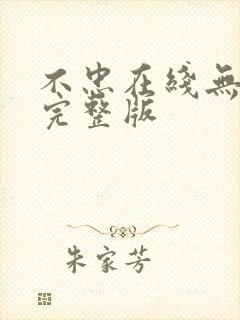 不忠在綫無
完整版
朱家芳